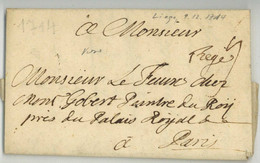 1714
Liege 9.12.1714
A Monsieur
Liege
Monsieur Le Feure chez
Mons Gobert Peintre du Roy
près du Palais Royal
à Paris